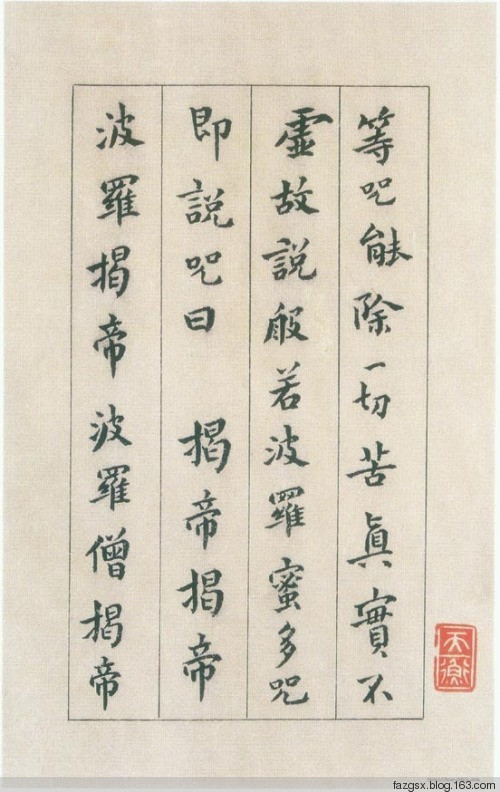 等咒能除一切苦真實不
虛故說般若波羅蜜多咒
即說咒曰 揭帝揭帝
波羅揭帝波羅僧揭帝
天衡
fazgsx.blog.163.com